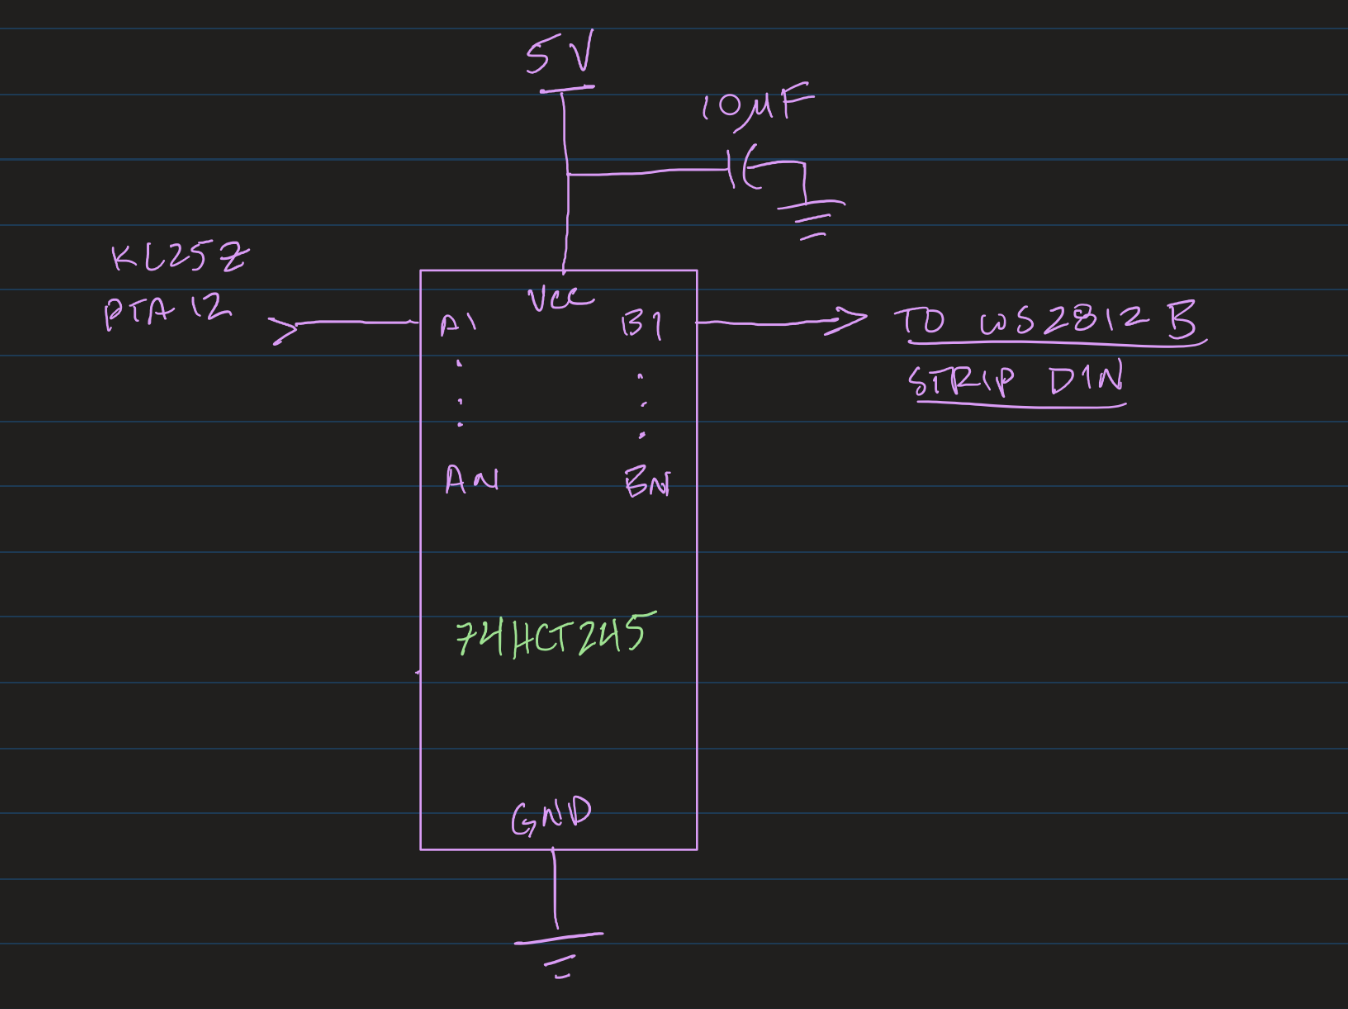 5V
10µF
KL25Z
PTA12
VCC
A1
B1
TO WS2812B
STRIP DIN
AN
BN
74HCT245
GND